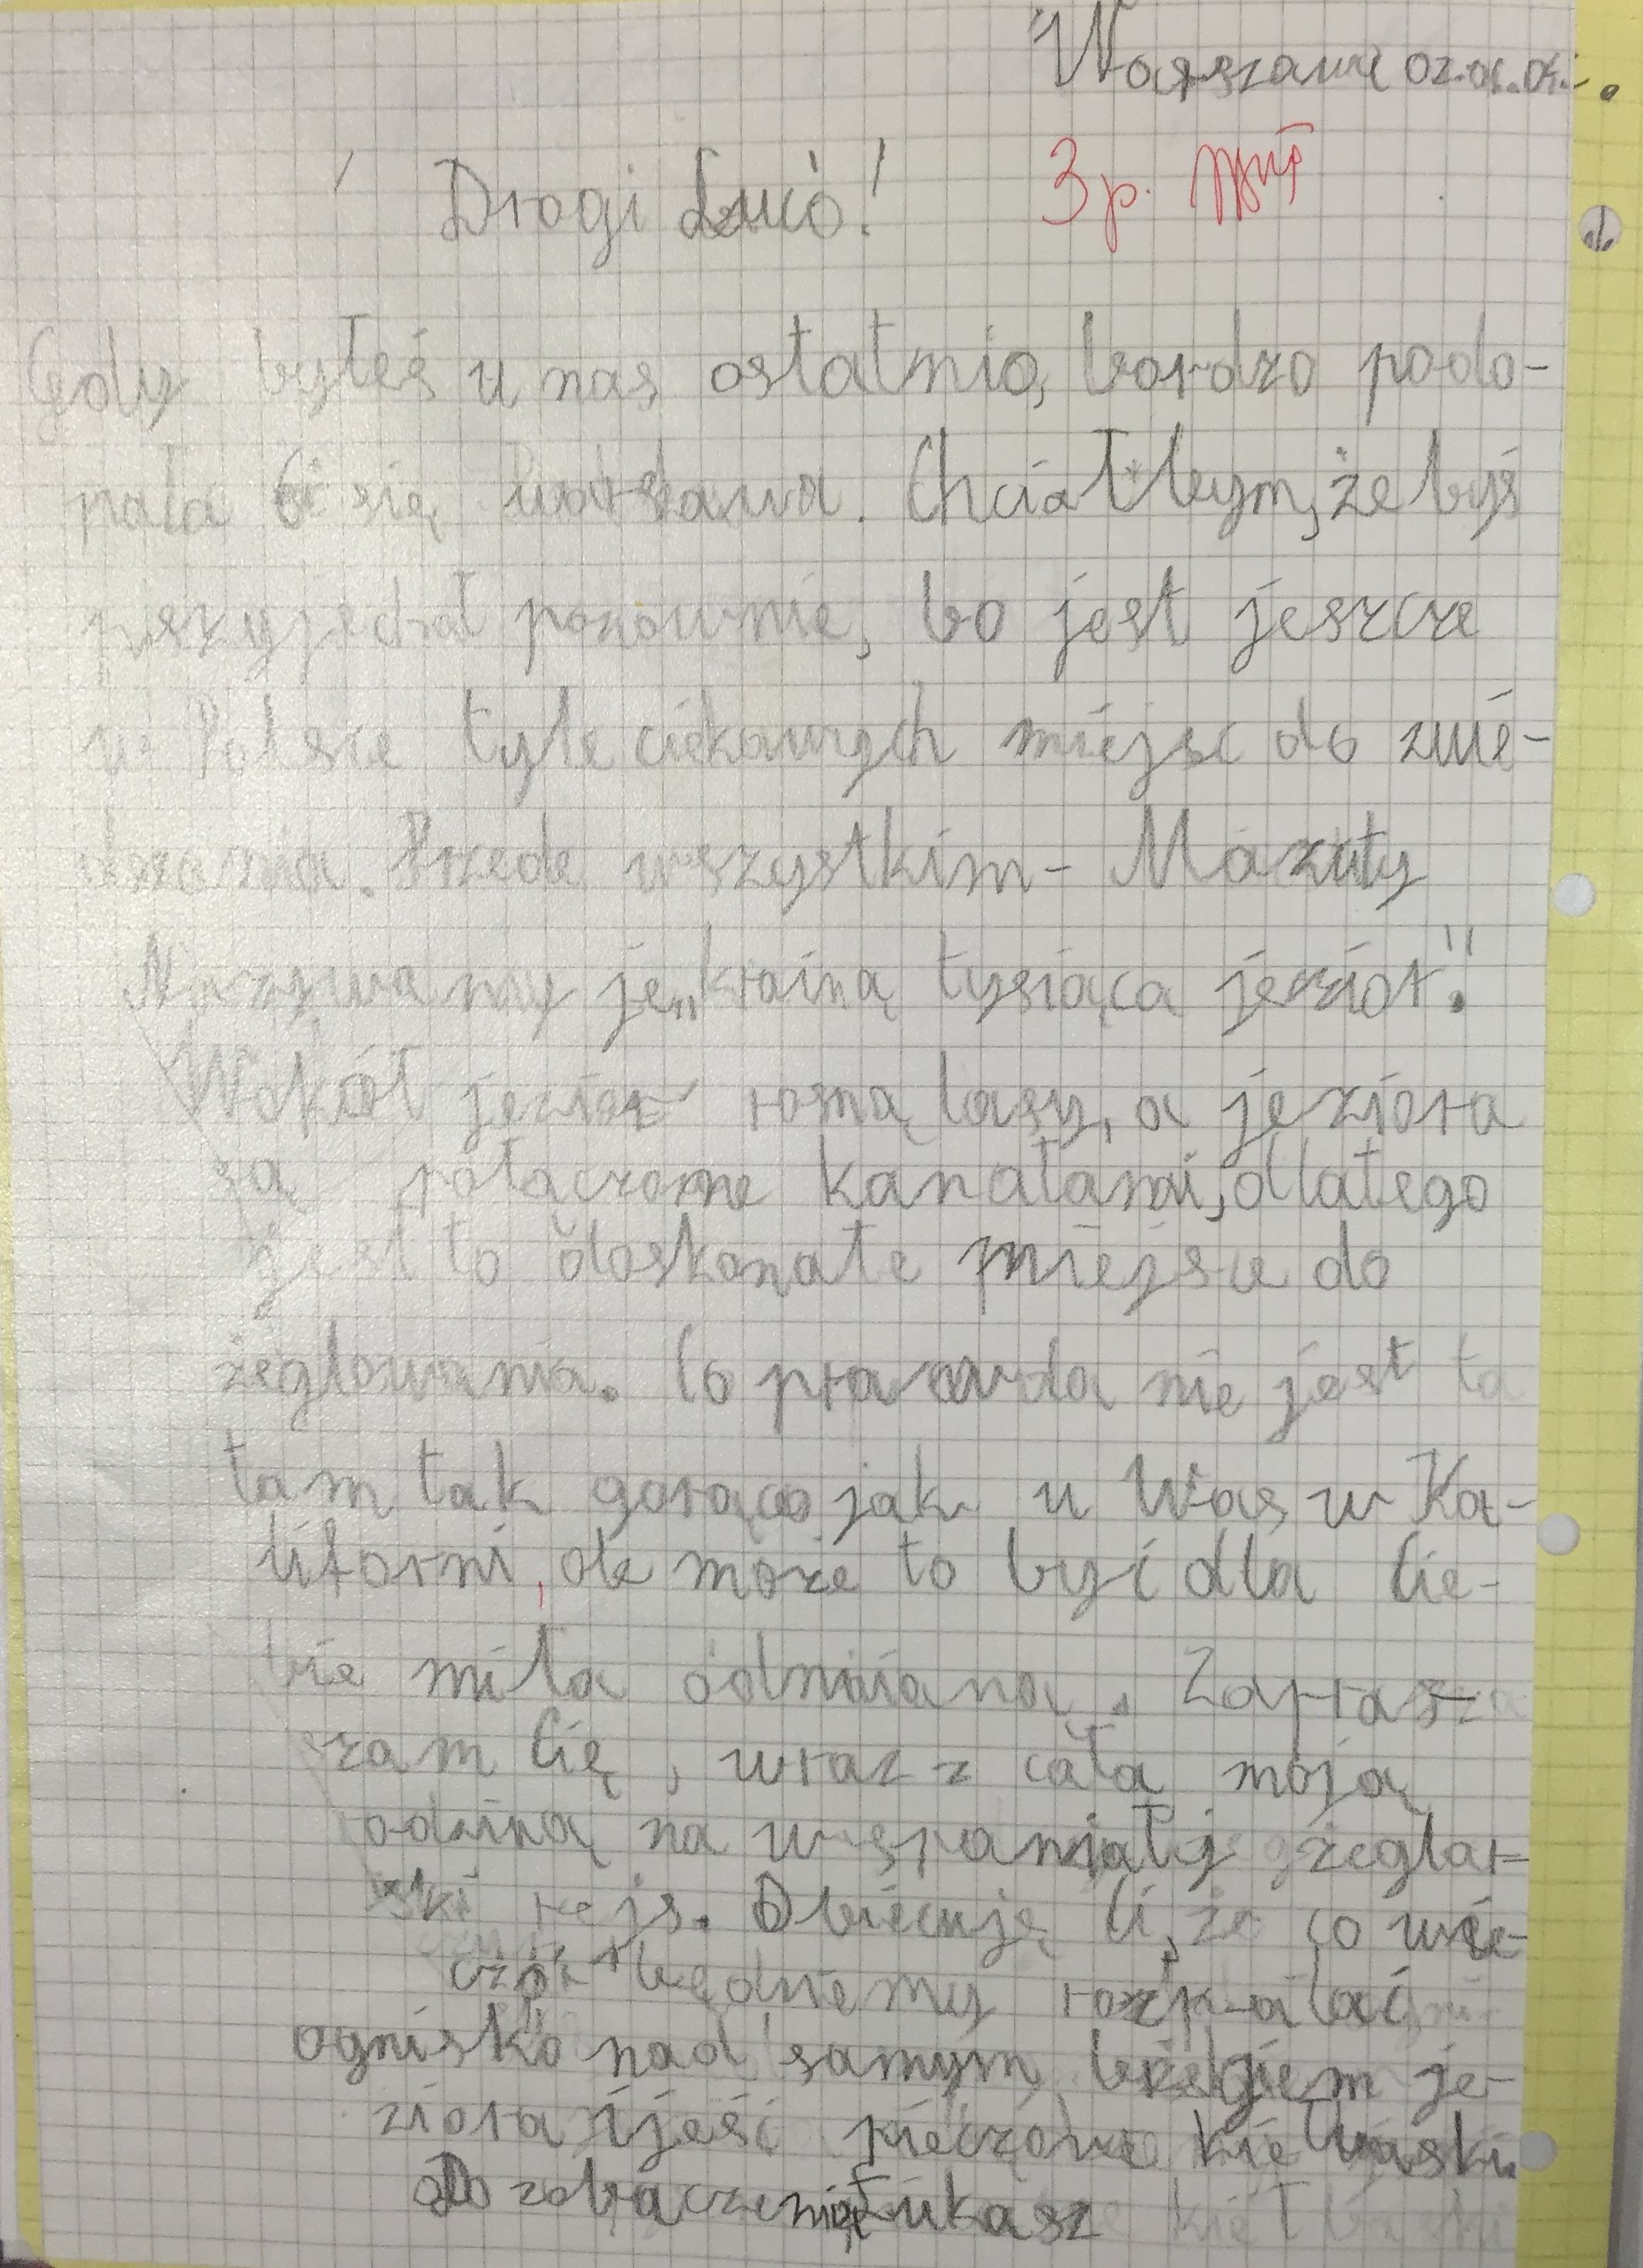 Warszawa 02.06.04.
Drogi Lució!
3 p.
Gdy byłeś u nas ostatnio, bardzo podo-
pała Ci się warszawa. Chciałbym, żebyś
przyjechał ponownie, bo jest jeszcze
w Polsce tyle ciekawych miejsc do zwie-
dzania. Przede wszystkim - Mazury
Nazywamy je „krainą tysiąca jezior".
Wokół jezior rosną lasy, a jeziora
są połączone kanałami, dlatego
jest to doskonałe miejsce do
żeglowania. Co prawda nie jest ta
tam tak gorąco jak u Was w Ka-
liforni, ale może to być dla Cie-
bie miła odmiana. Zaprasz
zam Cię, wraz z cała moją
odziną na wspaniały żeglar-
ski rejs. Obiecuję Ci, że co wie-
czór będziemy rozpalać
ognisko nad samym brzegiem je-
ziora i jeść pieczone kiełbaski.
Do zobaczenia Łukasz